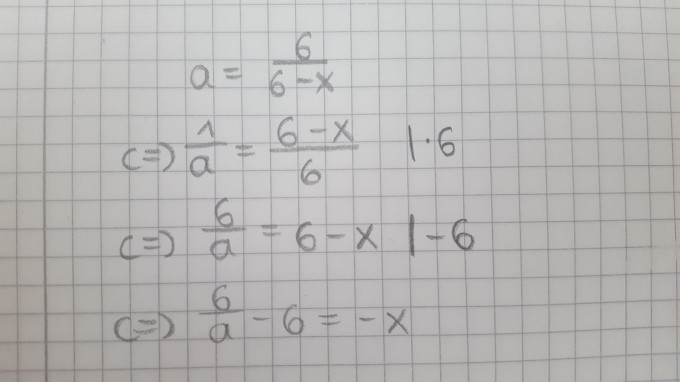 a = 6/(6-x)
(=) 1/a = (6-x)/6 |·6
(=) 6/a = 6-x |-6
(=) 6/a - 6 = -x